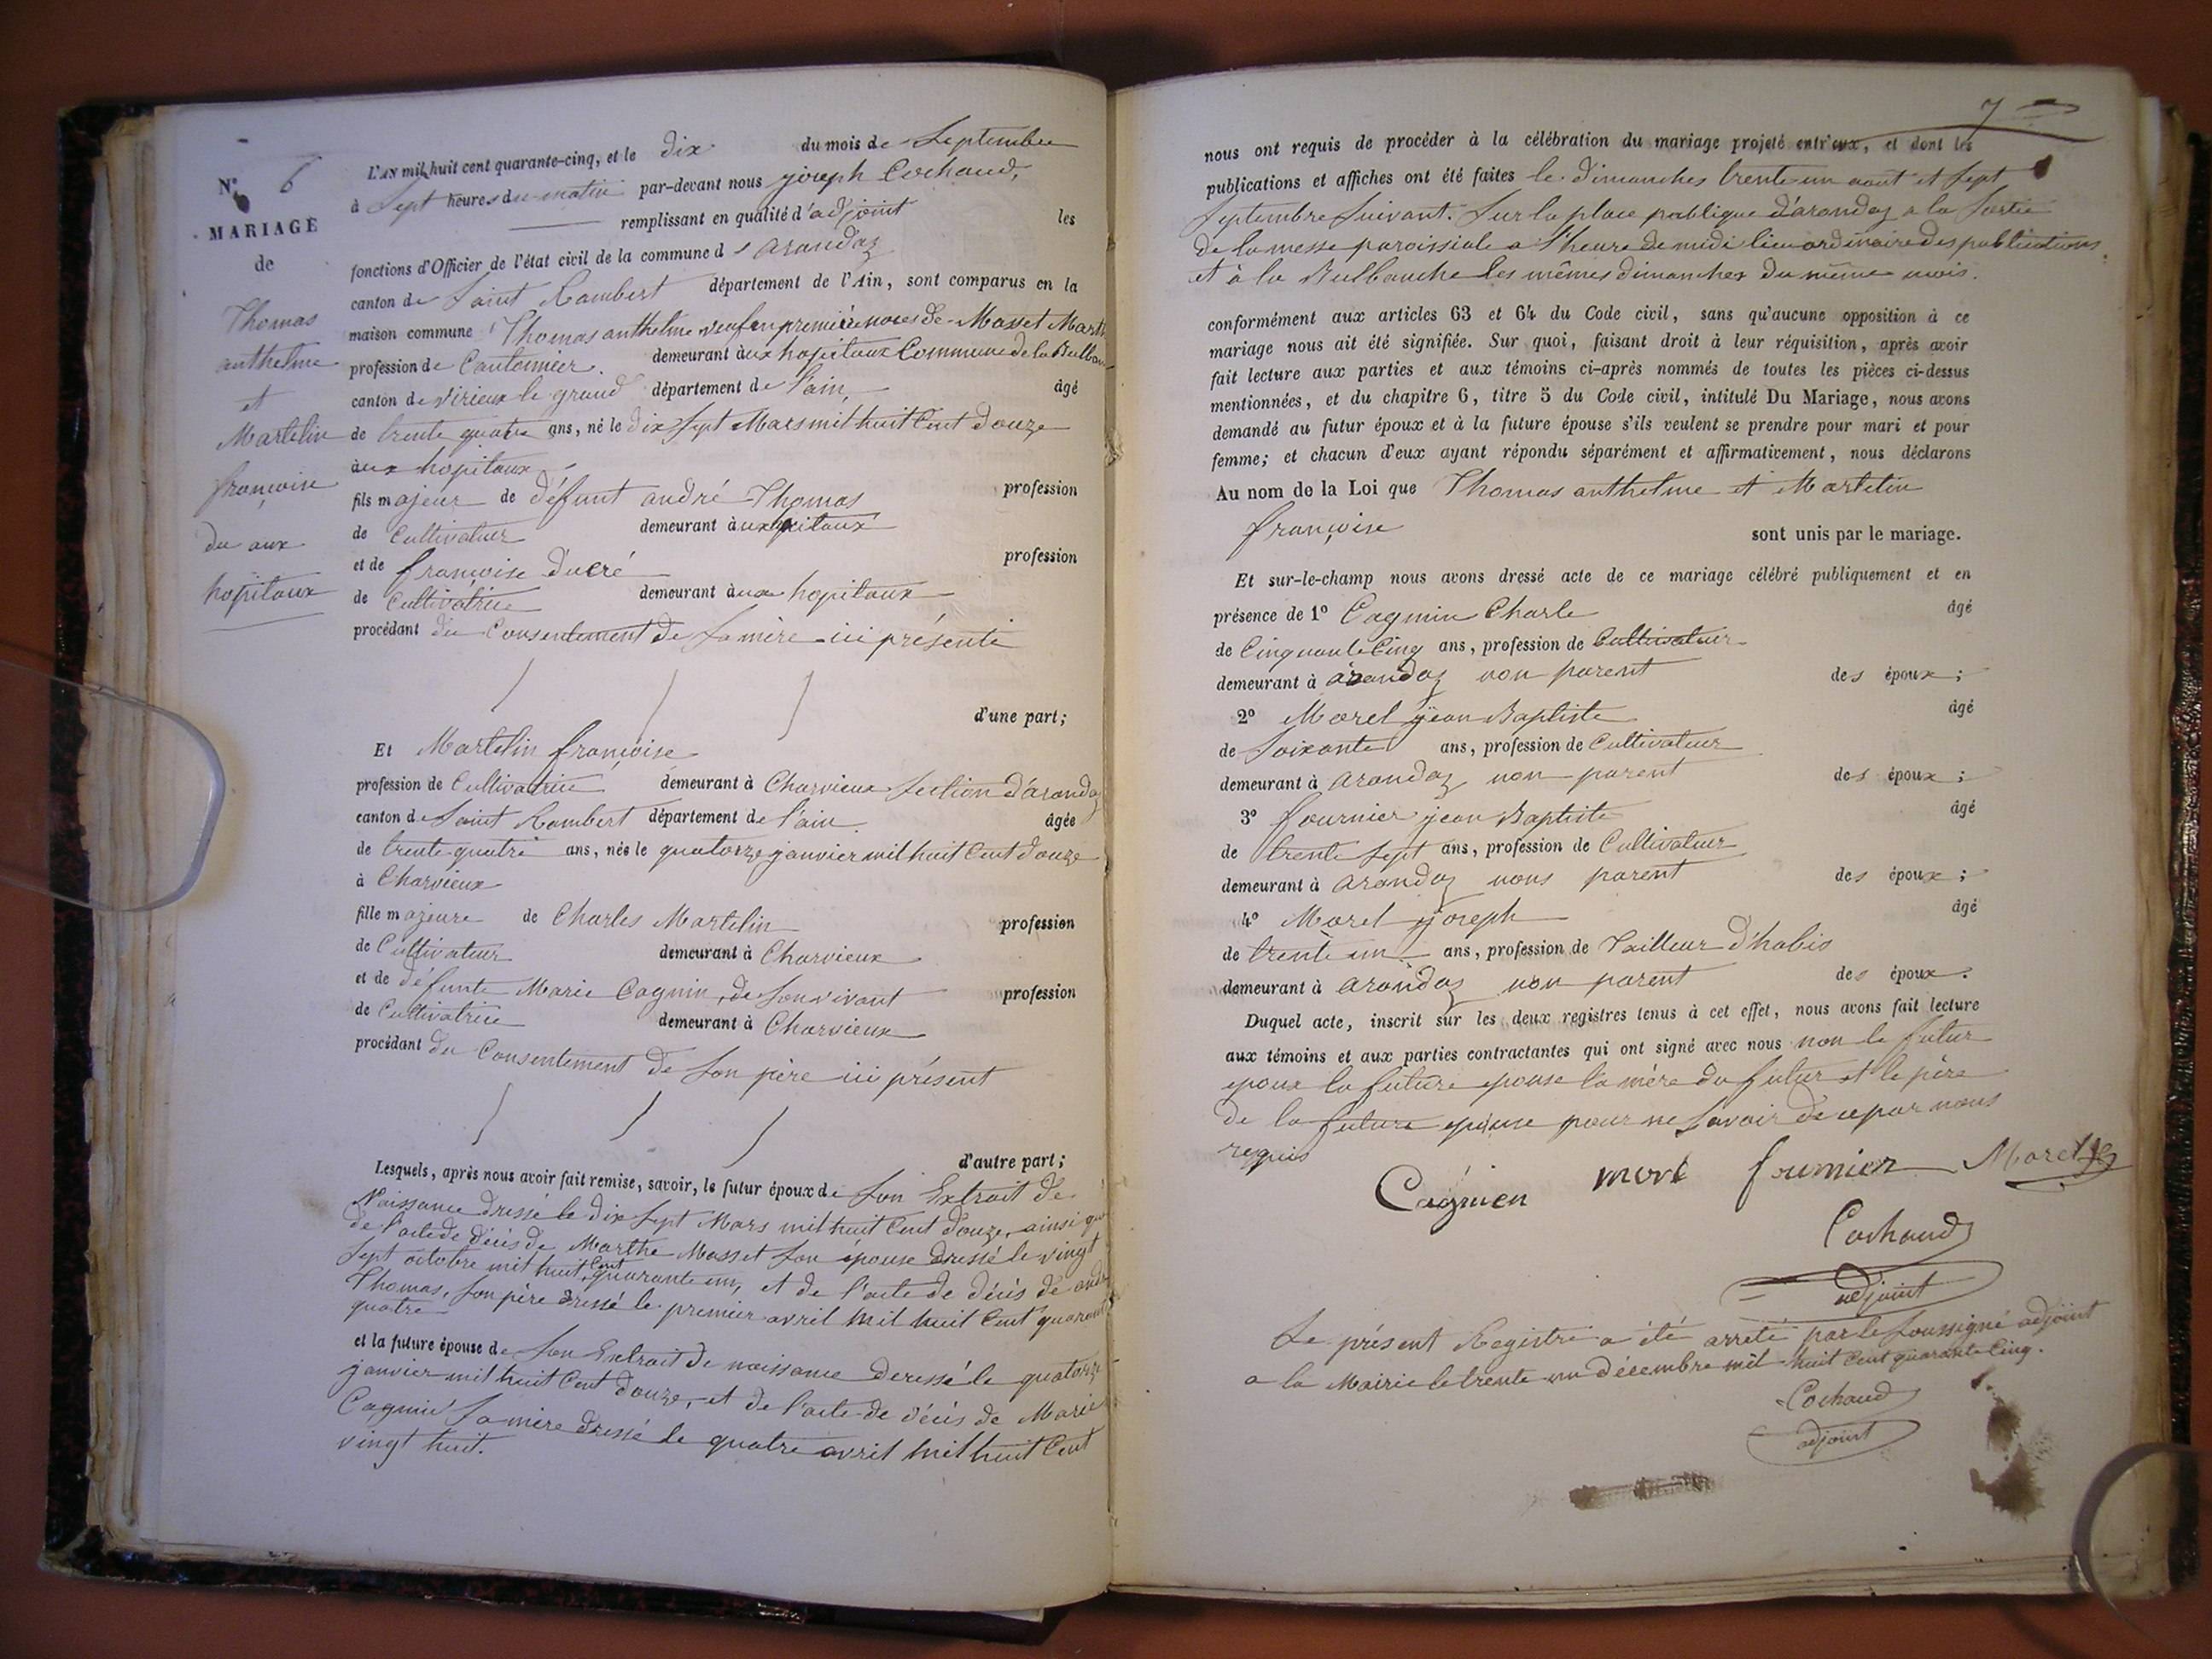 N° 6
MARIAGE
de
Thomas
anthelme
et
Martelin
françoise
du aux
hopitaux
L'AN mil huit cent quarante-cinq, et le dix du mois de Septembre
à Sept heures du matin par-devant nous joseph Cochaud,
remplissant en qualité d'adjoint les
fonctions d'Officier de l'état civil de la commune d'arandaz
canton de Saint Rambert département de l'Ain, sont comparus en la
maison commune Thomas anthelme veuf en première noces de Masset Marth
profession de Cantonnier. demeurant àux hopitaux Commune de la Bulbau
canton de Virieux le grand département de l'ain, âgé
de trente quatre ans, né le dix Sept Mars mil huit Cent douze
àux hopitaux
fils majeur de défunt andré Thomas profession
de Cultivateur demeurant àux opitaux
et de françoise ducré profession
de Cultivatrice demeurant àux hopitaux
procédant du Consentement de Sa mère ici présente
d'une part;
Et Martelin françoise
profession de Cultivatrice demeurant à Charvieux Section d'arandaz
canton de Saint Rambert département de l'ain. âgée
de trente quatre ans, née le quatorze janvier mil huit Cent douze
à Charvieux
fille majeure de Charles Martelin profession
de Cultivateur demeurant à Charvieux
et de défunte Marie Cagnin, de Son vivant profession
de Cultivatrice demeurant à Charvieux
procédant du Consentement de Son père ici présent
d'autre part;
Lesquels, après nous avoir fait remise, savoir, le futur époux de Son Extrait de
Naissance dressé le dix Sept Mars mil huit Cent douze, ainsi que
de l'acte de décès de Marthe Masset Son épouse dressé le vingt
Sept octobre mil huit Cent quarante un, et de l'acte de décès de andré
Thomas, Son père dressé le premier avril mil huit Cent quarante
quatre
et la future épouse de Son Extrait de naissance deressé le quatorze
janvier mil huit Cent douze, et de l'acte de décès de Marie
Cagnin Sa mère dressé le quatre avril mil huit Cent
vingt huit.
7
nous ont requis de procéder à la célébration du mariage projeté entr'eux, et dont les
publications et affiches ont été faites le dimanches trente un aout et Sept
Septembre Suivant. Sur la place publique d'arandaz a la Sortie
de la messe paroissiale a l'heure de midi lieu ordinaire des publications
et à la Bulbauche les mêmes dimanches du même mois.
conformément aux articles 63 et 64 du Code civil, sans qu'aucune opposition à ce
mariage nous ait été signifiée. Sur quoi, faisant droit à leur réquisition, après avoir
fait lecture aux parties et aux témoins ci-après nommés de toutes les pièces ci-dessus
mentionnées, et du chapitre 6, titre 5 du Code civil, intitulé Du Mariage, nous avons
demandé au futur époux et à la future épouse s'ils veulent se prendre pour mari et pour
femme; et chacun d'eux ayant répondu séparément et affirmativement, nous déclarons
Au nom de la Loi que Thomas anthelme et Martelin
françoise sont unis par le mariage.
Et sur-le-champ nous avons dressé acte de ce mariage célébré publiquement et en
présence de 1° Cagnin Charle âgé
de Cinquante Cinq ans, profession de Cultivateur
demeurant à arandaz non parent des époux;
2° Morel jean Baptiste âgé
de Soixante ans, profession de Cultivateur
demeurant à arandaz non parent des époux;
3° fournier jean Baptiste âgé
de trente Sept ans, profession de Cultivateur
demeurant à arandaz nons parent des époux;
4° Maret joseph âgé
de trente un ans, profession de Tailleur d'habis
demeurant à arandaz non parent des époux.
Duquel acte, inscrit sur les deux registres tenus à cet effet, nous avons fait lecture
aux témoins et aux parties contractantes qui ont signé avec nous non le futur
epoux la future epouse la mère du futur et le père
de la future epouse pour ne Savoir de ce par nous
requis
Cagnien morel fournier Maret
Cochaud
adjoint
Le présent Registre a été arrêté par le Soussigné adjoint
a la Mairie le trente un décembre mil huit Cent quarante Cinq.
Cochaud
adjoint